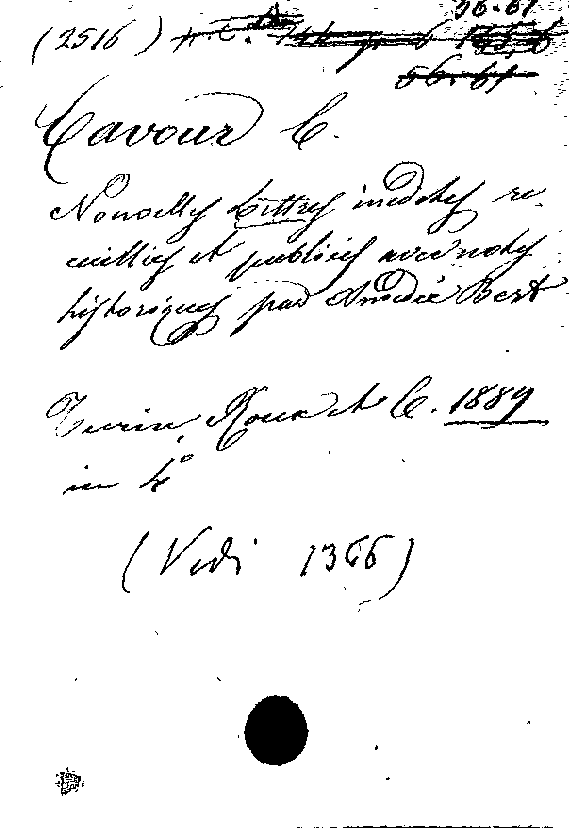 56.61
(2516)
56.61
Cavour C.
Nouvelles Lettres inédites re-
cueillies et publiées avec notes
historiques par Amédée Bert
Turin, Roux et C. 1889
in 4°
(Vedi 1366)